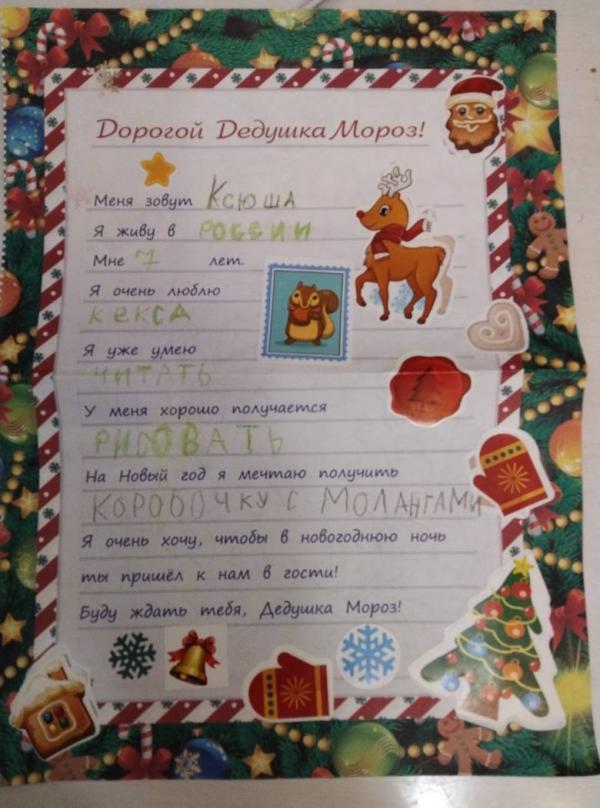 Дорогой Дедушка Мороз!
Меня зовут Ксюша
Я живу в РОССИИ
Мне 7 лет.
Я очень люблю
Кекса
Я уже умею
ЧИТАТЬ
У меня хорошо получается
РИСОВАТЬ
На Новый год я мечтаю получить
КОРОБОЧКУ С МОЛАНГАМИ
Я очень хочу, чтобы в новогоднюю ночь
ты пришёл к нам в гости!
Буду ждать тебя, Дедушка Мороз!